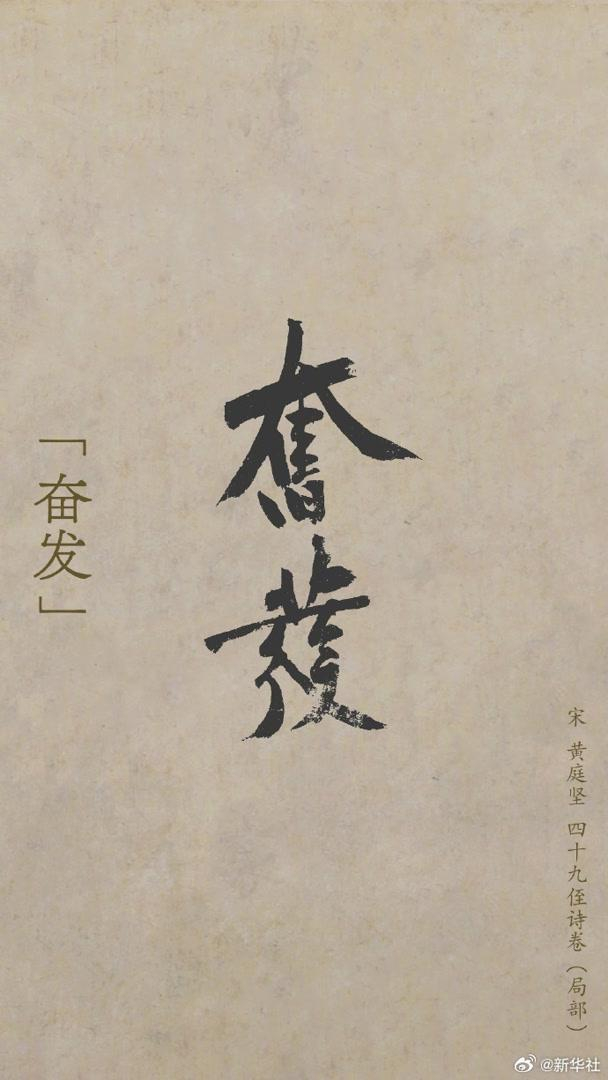 奮
發
「奋发」
宋 黄庭坚 四十九侄诗卷（局部）
@新华社